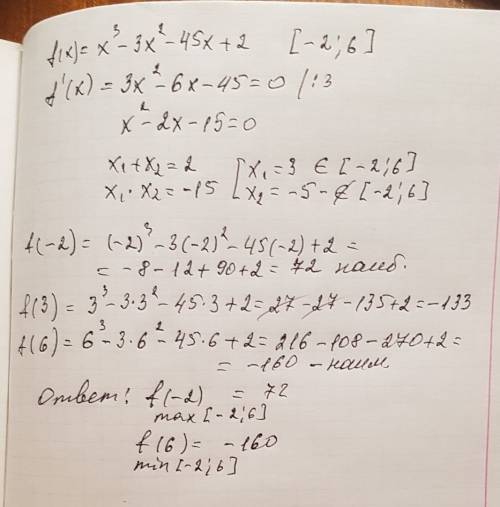 f(x) = x³ - 3x² - 45x + 2 [-2; 6]
f'(x) = 3x² - 6x - 45 = 0 /:3
x² - 2x - 15 = 0
x₁ + x₂ = 2 [x₁ = 3 ∈ [-2; 6]
x₁ · x₂ = -15 [x₂ = -5 - ∉ [-2; 6]
f(-2) = (-2)³ - 3(-2)² - 45(-2) + 2 =
= -8 - 12 + 90 + 2 = 72 наиб.
f(3) = 3³ - 3·3² - 45·3 + 2 = 27 - 27 - 135 + 2 = -133
f(6) = 6³ - 3·6² - 45·6 + 2 = 216 - 108 - 270 + 2 =
= -160 - наим
Ответ: f(-2) = 72
max [-2; 6]
f(6) = -160
min [-2; 6]